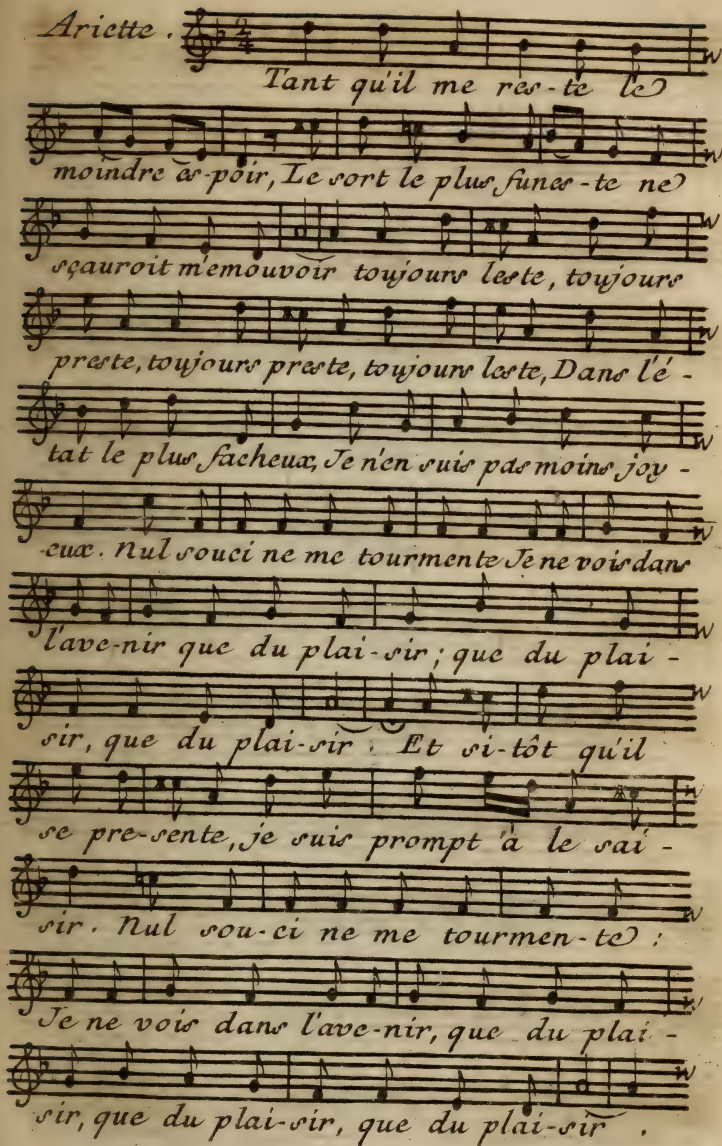 Ariette.
Tant qu'il me res-te le
moindre es-poir, Le sort le plus funes-te ne
sçauroit m'emouvoir toujours leste, toujours
preste, toujours preste, toujours leste, Dans l'é-
tat le plus facheux, Je n'en suis pas moins joy-
-eux. Nul souci ne me tourmente Je ne vois dans
l'ave-nir que du plai-sir; que du plai-
sir, que du plai-sir. Et si-tôt qu'il
se pre-sente, je suis prompt à le sai-
sir. Nul sou-ci ne me tourmen-te:
Je ne vois dans l'ave-nir, que du plai-
sir, que du plai-sir, que du plai-sir.